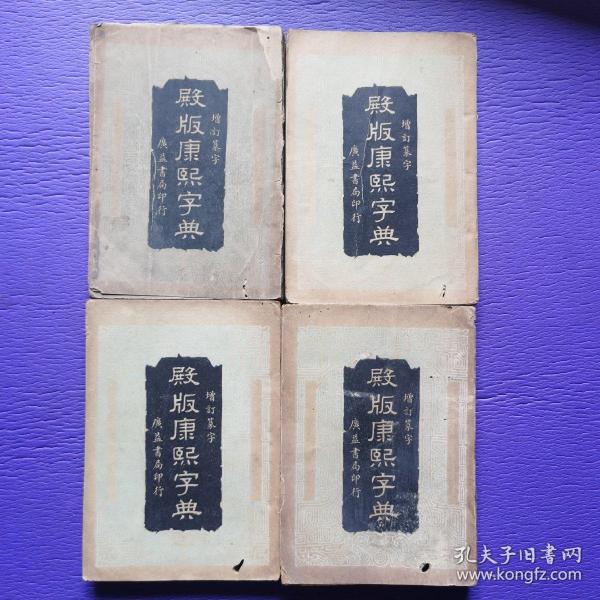 增訂篆字
殿版康熙字典
廣益書局印行
增訂篆字
殿版康熙字典
廣益書局印行
增訂篆字
殿版康熙字典
廣益書局印行
增訂篆字
殿版康熙字典
廣益書局印行
孔夫子旧书网
www.kongfz.com